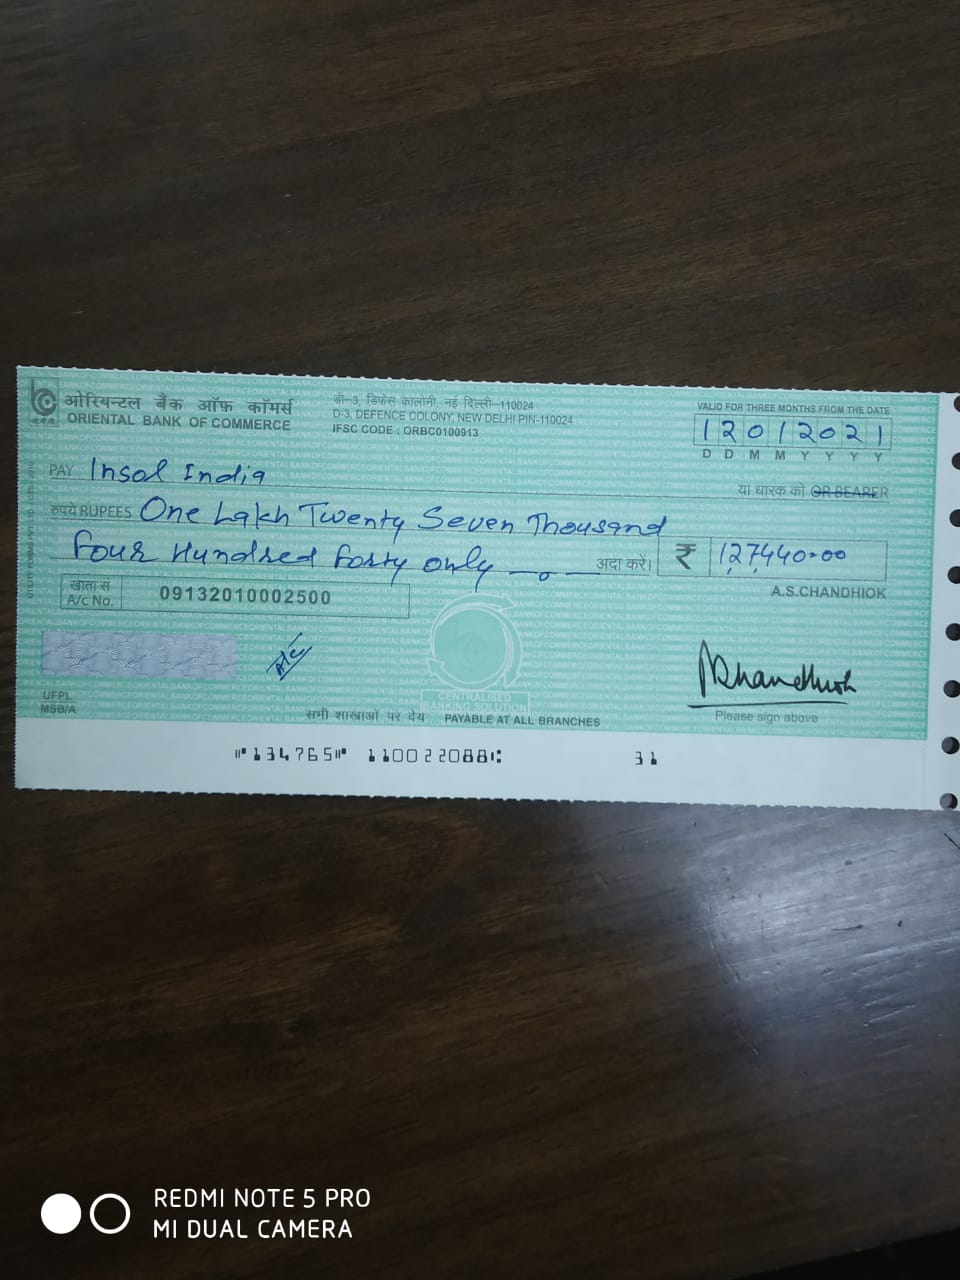 ओरियन्टल बैंक ऑफ़ कॉमर्स
ORIENTAL BANK OF COMMERCE
डी–3, डिफेंस कालोनी, नई दिल्ली–110024
D-3, DEFENCE COLONY, NEW DELHI PIN-110024
IFSC CODE : ORBC0100913
VALID FOR THREE MONTHS FROM THE DATE
12012021
D D M M Y Y Y Y
PAY Insol India
या धारक को OR BEARER
रुपये RUPEES One Lakh Twenty Seven Thousand
Four Hundred Forty only
अदा करें। ₹ 127440.00
खाता सं
A/c No. 09132010002500
A.S.CHANDHIOK
A/C
CENTRALISED
BANKING SOLUTION
UFPL
MSB/A
सभी शाखाओं पर देय PAYABLE AT ALL BRANCHES
Please sign above
⑈134765⑈ 110022088⑆ 31
REDMI NOTE 5 PRO
MI DUAL CAMERA